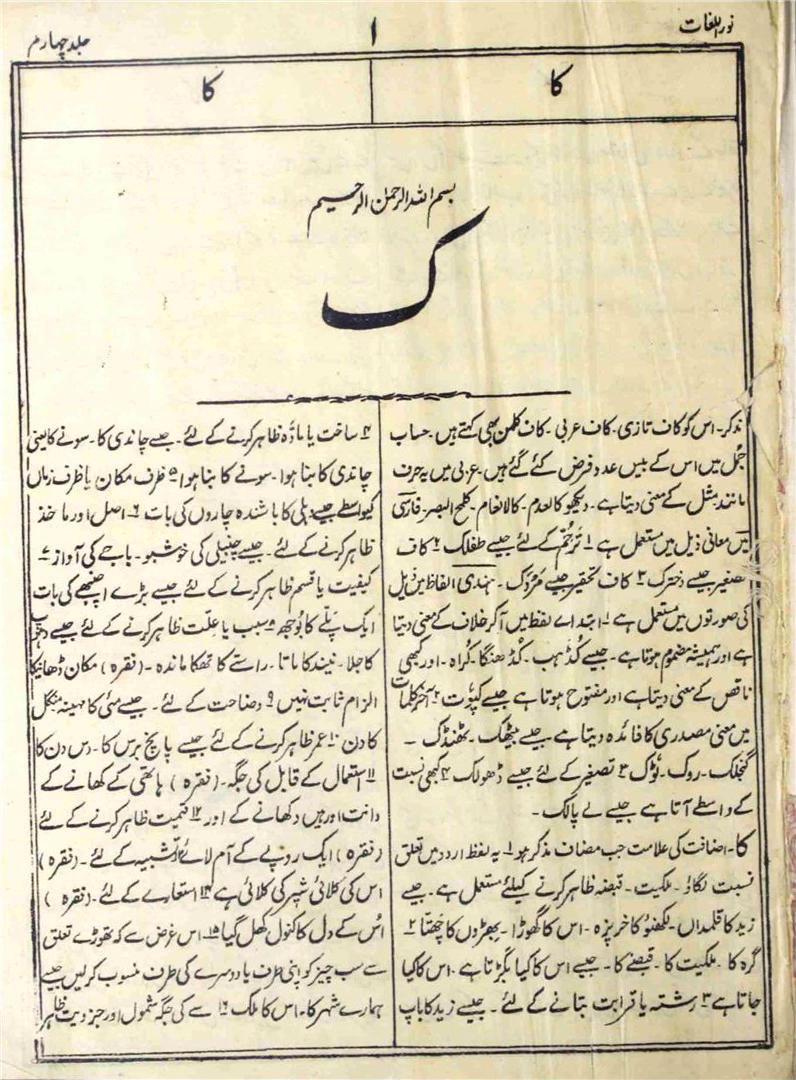 نور اللغات
۱
جلد چہارم
کا
کا
بسم اللہ الرحمٰن الرحیم
ک
مذکر۔ اس کو کاف تازی۔ کاف عربی۔ کاف کلمن بھی کہتے ہیں۔ حساب
جُمل میں اس کے بیس عدد فرض کئے گئے ہیں۔ عربی میں یہ حرف
مانند مثل کے معنی دیتا ہے۔ دیکھو کالعدم۔ کالانعام۔ کلمح البصر۔ فارسی
میں معانی ذیل میں مستعمل ہے ۱ ترحّم کے لئے جیسے طفلک ۲ کاف
تصغیر جیسے دخترک ۳ کاف تحقیر جیسے مَردَک۔ ہندی الفاظ میں ذیل
کی صورتوں میں مستعمل ہے ۱ ابتداے لفظ میں آکر خلاف کے معنی دیتا
ہے اور ہمیشہ مضموم ہوتا ہے۔ جیسے کُڈہب۔ کُڈھنگا۔ کُراہ۔ اور کبھی
ناقص کے معنی دیتا ہے اور مفتوح ہوتا ہے جیسے کپوت ۲ آخر کلمات
میں معنی مصدری کا فائدہ دیتا ہے جیسے بیٹھک۔ ٹھنڈک۔
گنجلک۔ روک۔ ٹوک ۳ تصغیر کے لئے جیسے ڈھولک ۴ کبھی نسبت
کے واسطے آتا ہے جیسے لے پالک۔
کا۔ اضافت کی علامت جب مضاف مذکر ہو ۱ یہ لفظ اردو میں تعلق
نسبت لگاؤ۔ ملکیت۔ قبضہ ظاہر کرنے کیلئے مستعمل ہے۔ جیسے
زید کا قلمدان۔ لکھنؤ کا خربزہ۔ اس کا گھوڑا۔ بھڑوں کا چھتّا ۲
گرہ کا۔ ملکیت کا۔ قبضے کا۔ جیسے اس کا کیا بگڑتا ہے۔ اس کا کیا
جاتا ہے ۳ رشتہ یا قرابت بتانے کے لئے۔ جیسے زید کا باپ
۴ ساخت یا مادّہ ظاہر کرنے کے لئے۔ جیسے چاندی کا۔ سونے کا یعنی
چاندی کا بنا ہوا۔ سونے کا بنا ہوا ۵ ظرف مکان یا ظرف زماں
کیواسطے جیسے دلی کا باشندہ چاروں کی بات ۶ اصل اور ماخذ
ظاہر کرنے کے لئے۔ جیسے چنبیلی کی خوشبو۔ باجے کی آواز ۷
کیفیت یا قسم ظاہر کرنے کے لئے جیسے بڑے اچنبھے کی بات
ایک پلّے کا بوجھ ۸ سبب یا علّت ظاہر کرنے کے لئے جیسے دھوپ
کا جلا۔ نیند کا ماتا۔ راستے کا تھکا ماندہ۔ (فقرہ) مکان ڈھانیکا
الزام ثابت نہیں ۹ وضاحت کے لئے۔ جیسے مئی کا مہینہ منگل
کا دن ۱۰ عمر ظاہر کرنے کے لئے جیسے پانچ برس کا۔ دس دن کا
۱۱ استعمال کے قابل کی جگہ۔ (فقرہ) ہاتھی کے کھانے کے
دانت اور ہیں دکھانے کے اور ۱۲ قیمت ظاہر کرنے کے لئے
(فقرہ) ایک روپے کے آم لائے ۱۳ تشبیہ کے لئے۔ (فقرہ)
اس کی کلائی شیر کی کلائی ہے ۱۴ استعارے کے لئے۔ (فقرہ)
اُس کے دل کا کنول کھل گیا ۱۵۔ اس غرض سے کہ تھوڑے تعلق
سے سب چیز کو اپنی طرف یا دوسرے کی طرف منسوب کریں جیسے
ہمارے شہر کا۔ اس کا ملک ۱۶ سے کی جگہ شمول اور جزویت ظاہر